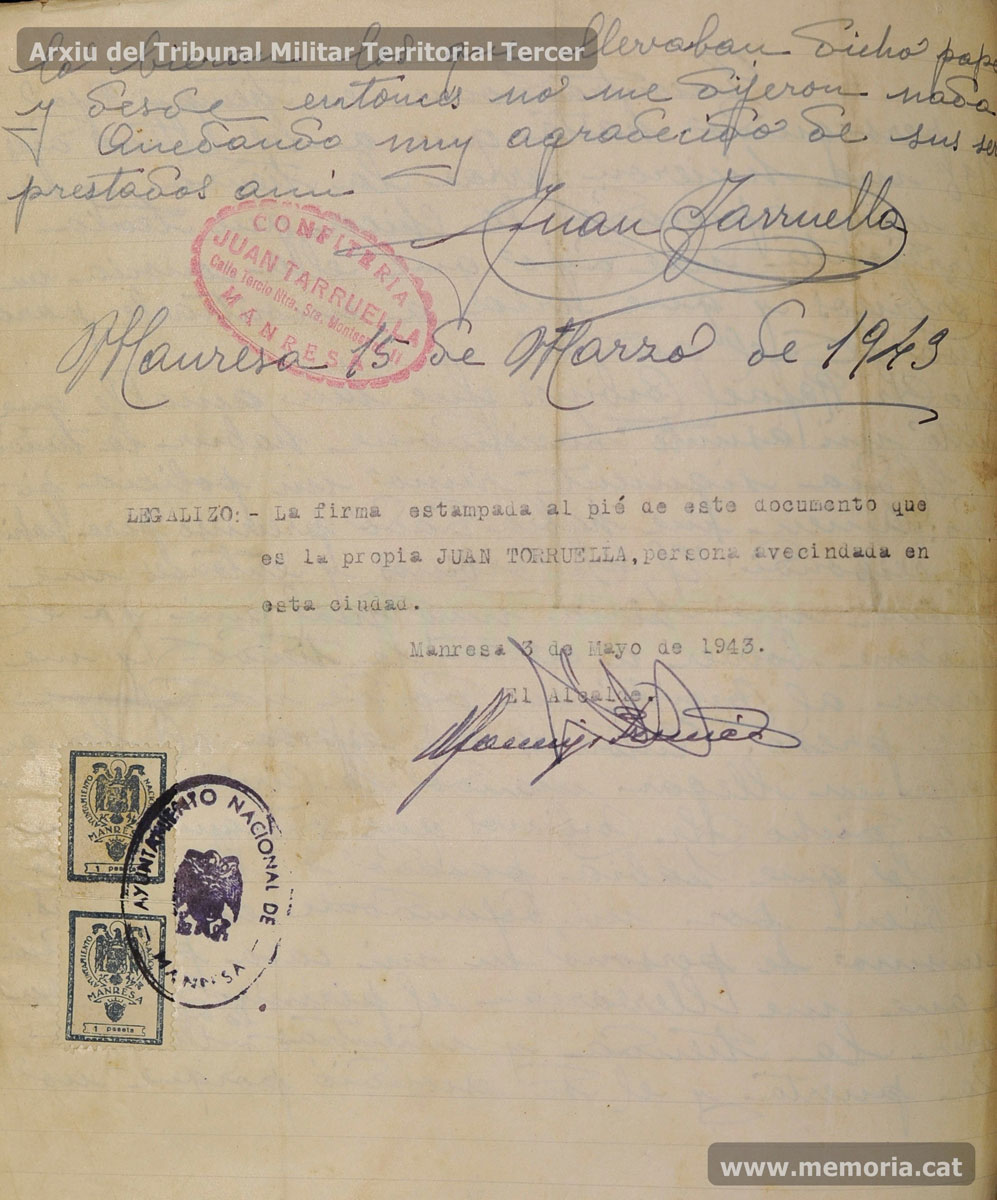 Arxiu del Tribunal Militar Territorial Tercer
llevaban dicho pape
y desde entonces no me dijeron nada
Quedando muy agradecido de sus ser
prestados ami
Juan Tarruella
CONFITERIA
JUAN TARRUELLA
Calle Tercio Ntra. Sra. Montserrat
MANRESA
Manresa 15 de Marzo de 1943
LEGALIZO:- La firma estampada al pié de este documento que
es la propia JUAN TORRUELLA, persona avecindada en
esta ciudad.
Manresa 3 de Mayo de 1943.
El Alcalde.
AYUNTAMIENTO NACIONAL
MANRESA
1 peseta
AYUNTAMIENTO NACIONAL DE
MANRESA
AYUNTAMIENTO
MANRESA
1 peseta
www.memoria.cat